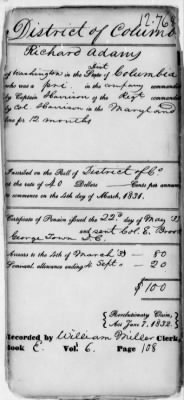 12.768
District of Columb
Richard Adams
of Washington in the State of Columbia
who was a pri. in the company commanded
by Captain Harrison of the Regt commanded
by Col Harrison in the Maryland
line for 12 months
Inscribed on the Roll of District of Co
at the rate of 40 Dollars Cents per annum
to commence on the 4th day of March, 1831.
Certificate of Pension issued the 22d day of May 33
and sent Col. E. Brook
George Town D.C.
Arrears to the 4th of March 33 80
Semi-annual allowance ending 4 Sept. 20
$100
Revolutionary Claim,
Act June 7, 1832.
Recorded by William Miller Clerk,
Book E. Vol. 6. Page 108